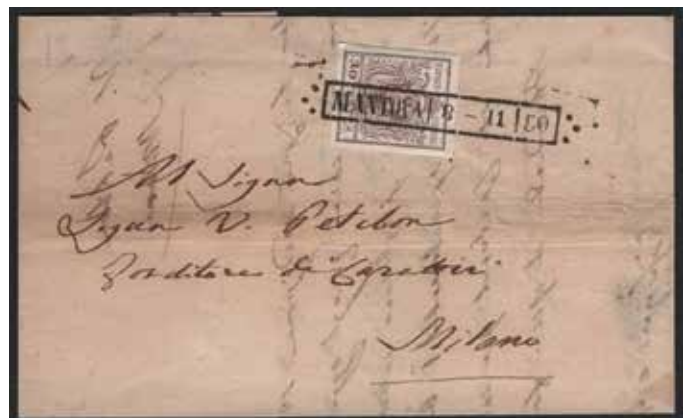 30
MANTOVA | 8 - 11 | 50
Al Signor
V. Petibon
Fonditore di Caratteri
Milano